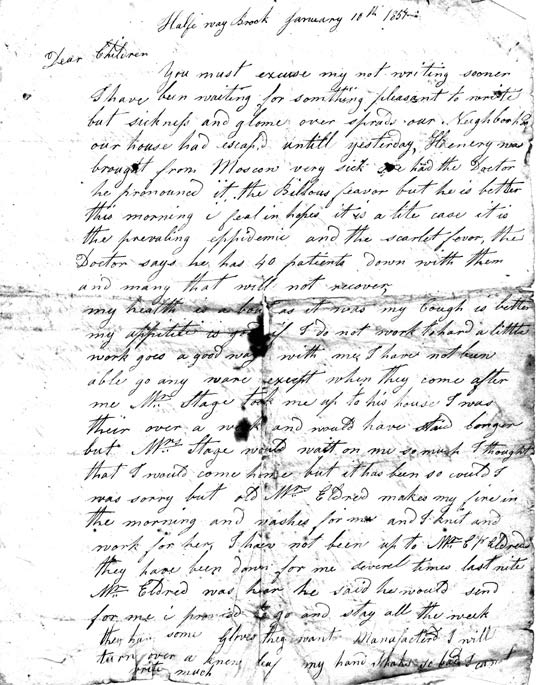 Halfe way Brook January 10th 185
Dear Children
You must excuse my not writing sooner
I have ben waiting for something pleasent to write
but sickness and glome over sprads our Neighborh
our house had escapd untill yesterday, Henery was
brought from Moscow very sick we had the Doctor
he pronounced it the Billous feavor but he is better
this morning i feal in hopes it is a lite case it is
the prevaling eppidemic and the scarlet fevor, the
Doctor says he has 40 patients down with them
and many that will not recover
my health is a bout as it was my Cough is better
my appetite is good if I do not work to hard a little
work goes a good way with me, I have not ben
able go any ware except when they come after
me Mr Stage took me up to his house I was
their over a week and would have staid longer
but Mrs Stage would wait on me so much I thought
that I would come home but it has ben so could I
was sorry but old Mrs Eldred makes my fire in
the morning and washes for me and I knit and
work for her, I have not been up to Mr Eldreds
they have been down for me several times last nite
Mr Eldred was hear he said he would send
for me i promised to go and stay all the week
they have some gloves they want Manufacterd I will
turn over a new leaf my hand shaks so bad I cant
write much